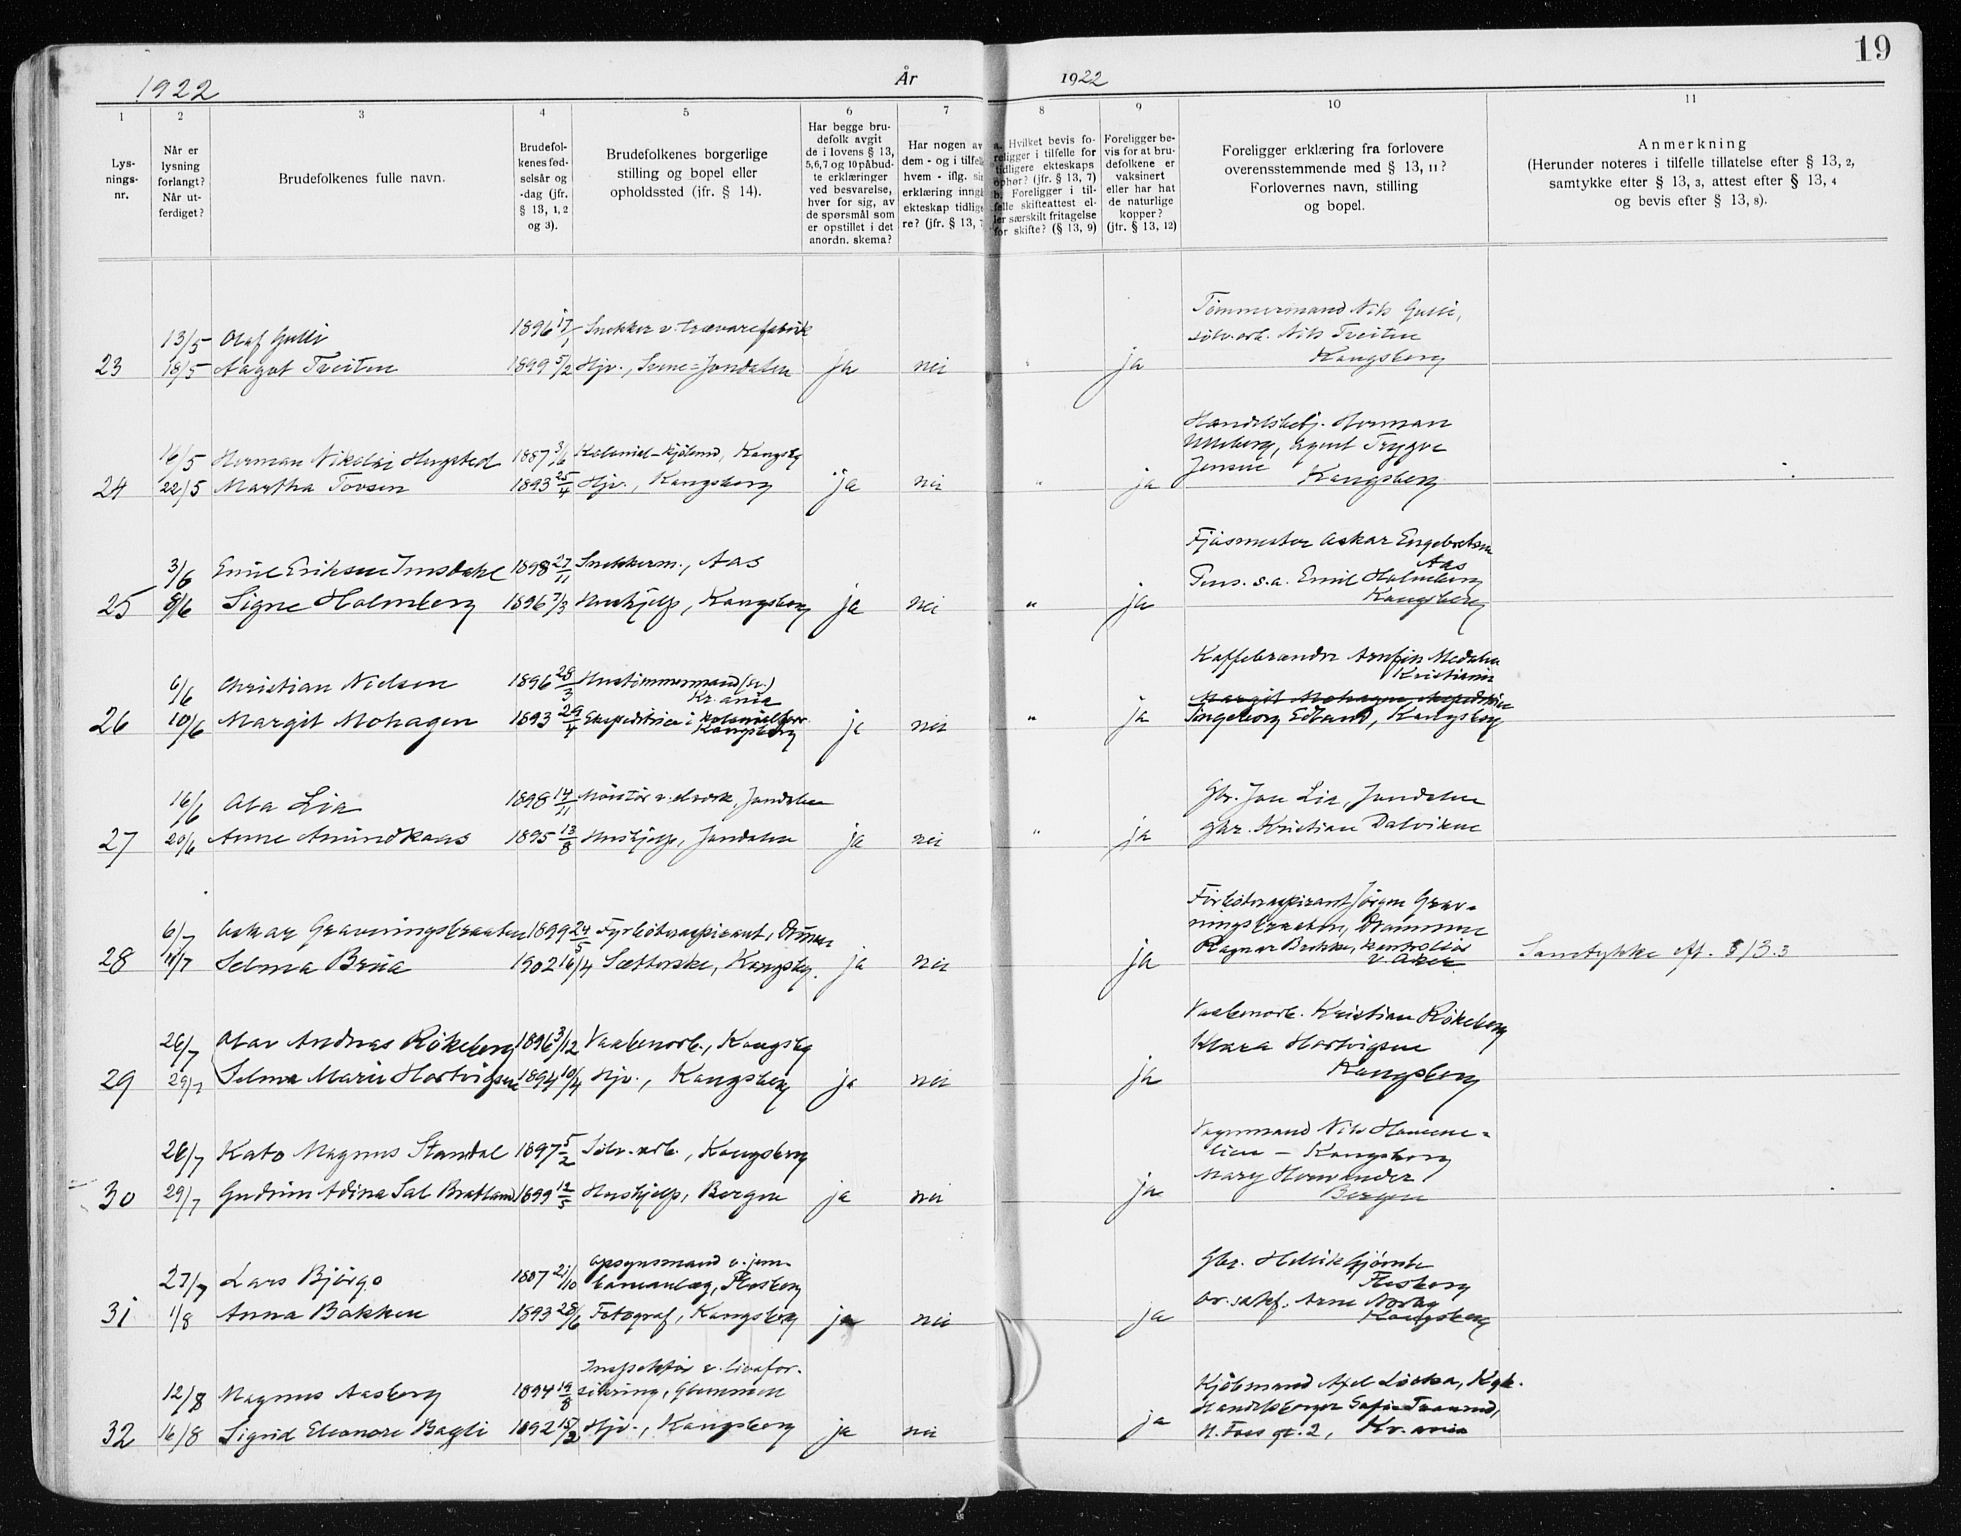 19
1922 År 1922
1 2 3 4 5 6 7 8 9 10 11
Lys-
nings-
nr.
Når er
lysning
forlangt?
Når ut-
ferdiget?
Brudefolkenes fulle navn.
Brudefol-
kenes fød-
selsår og
-dag (jfr.
§ 13, 1, 2
og 3).
Brudefolkenes borgerlige
stilling og bopel eller
opholdssted (jfr. § 14).
Har begge bru-
defolk avgit
de i lovens § 13,
5,6,7 og 10 påbud-
te erklæringer
ved besvarelse,
hver for sig, av
de spørsmål som
er opstillet i det
anordn. skema?
Har nogen av
dem - og i tilfelle
hvem - iflg.
erklæring inng
ekteskap tidlige
re? (jfr. § 13,
a. Hvilket bevis fo-
religger i tilfelle for
tidligere ekteskaps
ophør? (jfr. § 13, 7)
b. Foreligger i til-
felle skifteattest el-
ler særskilt fritagelse
for skifte? (§ 13, 9)
Foreligger be-
vis for at bru-
defolkene er
vaksinert
eller har hat
de naturlige
kopper?
(jfr. § 13, 12)
Foreligger erklæring fra forlovere
overensstemmende med § 13, 11?
Forlovernes navn, stilling
og bopel.
Anmerkning
(Herunder noteres i tilfelle tillatelse efter § 13, 2,
samtykke efter § 13, 3, attest efter § 13, 4
og bevis efter § 13, 8).
Tømmermand Nils Gulli,
13/5 Olaf Gulli 1896 17/1 Snekker v. trævarefabrik
sølvarb. Nils Tveiten
Kongsberg
23 18/5 Aagot Tveiten 1899 5/2 Hjv., Svene=Jondalen ja nei " ja
Handelsbetj. Herman
Ulleberg, agent Trygve
Jensen
16/5 Herman Nikolai Hugsted 1887 3/6 Kolonial-kjøbmd, Kongsbg
Kongsberg
24 22/5 Martha Tovsen 1893 25/4 Hjv., Kongsberg ja nei " ja
Fjøsmester Oskar Engebretsen
Aas
3/6 Emil Eriksen Imsdahl 1898 27/11 Snekkerm., Aas
Pens. s.a. Emil Holmberg
Kongsberg
25 8/6 Signe Holmberg 1896 7/3 Hushjelp, Kongsberg ja nei " ja
Kaffebrænder Arnfin Medalen
Kristiania
6/6 Christian Nielsen 1896 28/3 Hustømmermand (sv.)
Kr.ania
Margit Mohagen ekspeditrice
26 10/6 Margit Mohagen 1893 29/4 Ekspeditrice i kolonialforr.
Kongsberg ja nei " ja Ingeborg Edland, Kongsberg
16/6 Ola Lia 1898 14/11 Montør v. elverk, Jondalen
Gbr. Jon Lia, Jondalen
27 20/6 Anne Amundkaas 1895 13/8 Hushjelp, Jondalen ja nei " ja gbr. Kristian Dalviken
Fyrbøteraspirant Jørgen Grav-
ningsbraaten, Drammen
6/7 Oskar Gravningsbraaten 1899 24/5 Fyrbøteraspirant, Drmen
Ragnar Brekke, kontrollør
28 11/7 Selma Brua 1902 16/4 Sætterske, Kongsbg. ja nei ja Samtykke eft. § 13.3
Vaabenarb. Kristian Røkeberg
26/7 Olav Andreas Røkeberg 1896 3/12 Vaabenarb., Kongsbg
Klara Hartvigsen
29 29/7 Selma Marie Hartvigsen 1894 10/4 Hjv., Kongsberg ja nei ja Kongsberg
Vognmand Nils Hamene-
lien - Kongsberg
26/7 Kato Magnus Standal 1897 5/2 Sølv-arb., Kongsberg
Mary Hornander
Bergen
30 29/7 Gudrun Adina Sal. Bratland 1899 12/5 Hushjelp, Bergen ja nei ja
Gbr. Hellik Gjømle
Flesberg
27/7 Lars Bjørgo 1887 21/10 Opsynsmand v. jern-
baneanlæg, Flesberg
Kongsberg
31 1/8 Anna Bakken 1893 28/6 Fotograf, Kongsberg ja nei ja
12/8 Magnus Aasberg 1894 19/8 Inspektør v. livsfor-
sikring, Glemmen
Kjøbmand Axel Löcka, Kgb.
32 16/8 Sigrid Eleonore Bagli 1892 15/2 Hjv., Kongsberg ja nei ja
N. Foss gt. 2, Kr.ania